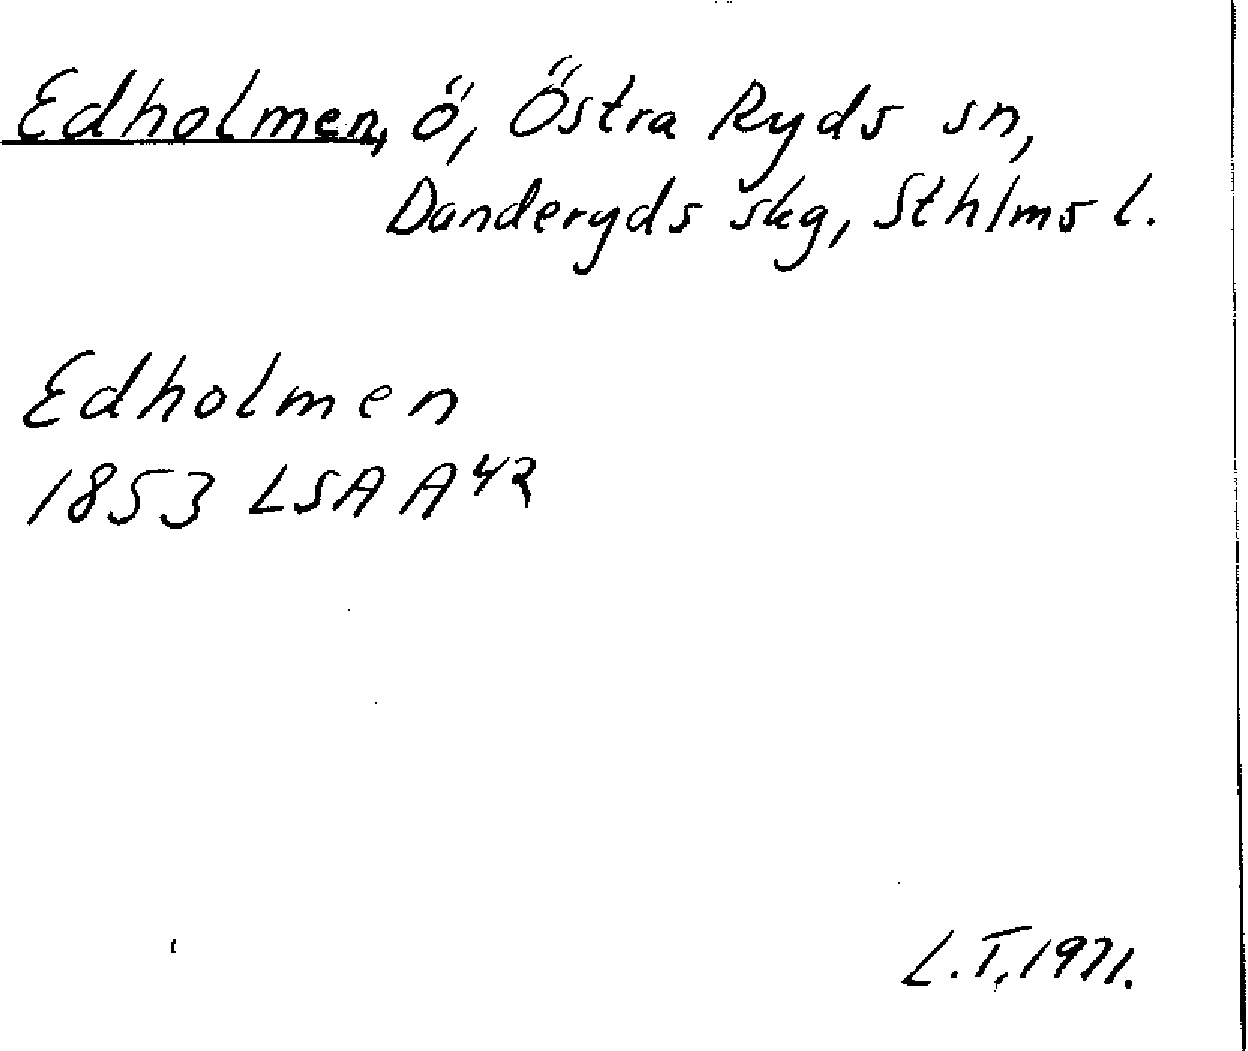 Edholmen, ö, Östra Ryds sn,
Danderyds skg, Sthlms l.
Edholmen
1853 LSA A 42
L.T. 1971.